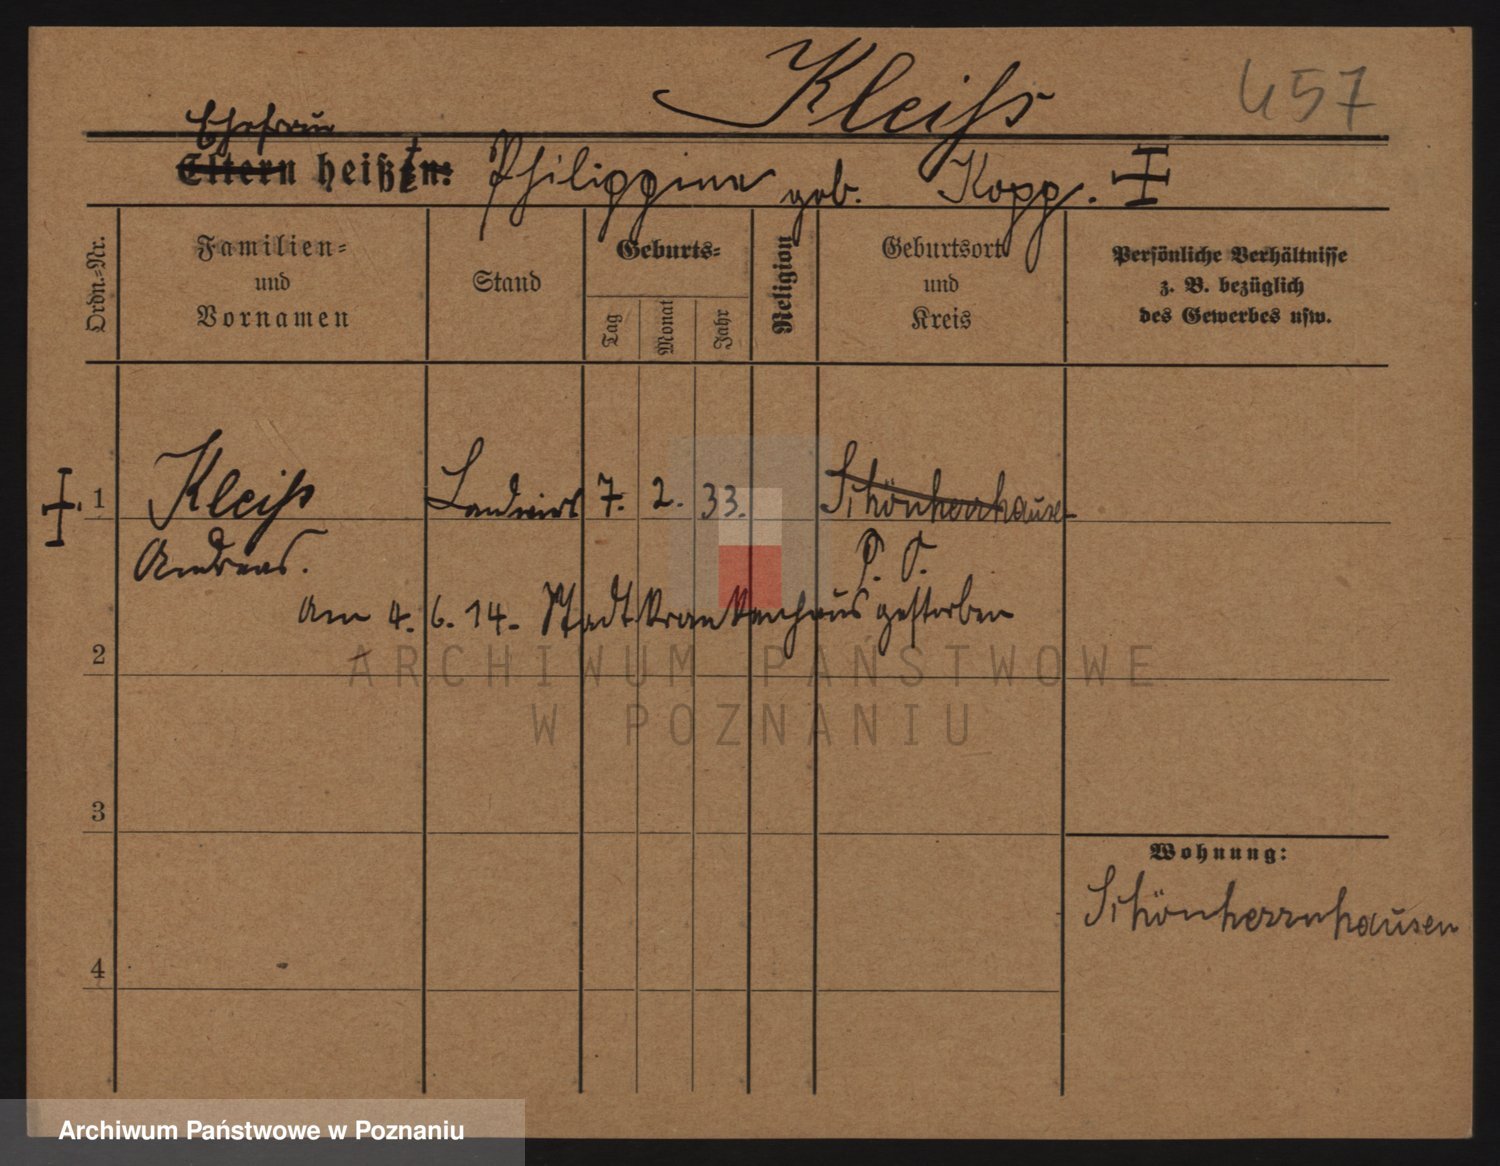 Kleiss
457
Ehefrau
Eltern heißt:
Philippine geb. Kopp.
Ordn.-Nr.
Familien-
und
Vornamen
Stand
Geburts-
Tag
Monat
Jahr
Religion
Geburtsort
und
Kreis
Persönliche Verhältnisse
z. B. bezüglich
des Gewerbes usw.
1
Kleiss
Andreas.
Landwirt
7. 2. 33.
Schönherrnhausen
am 4. 6. 14. Stadtkrankenhaus gestorben
2
ARCHIWUM PAŃSTWOWE
W POZNANIU
3
Wohnung:
Schönherrnhausen
4
Archiwum Państwowe w Poznaniu